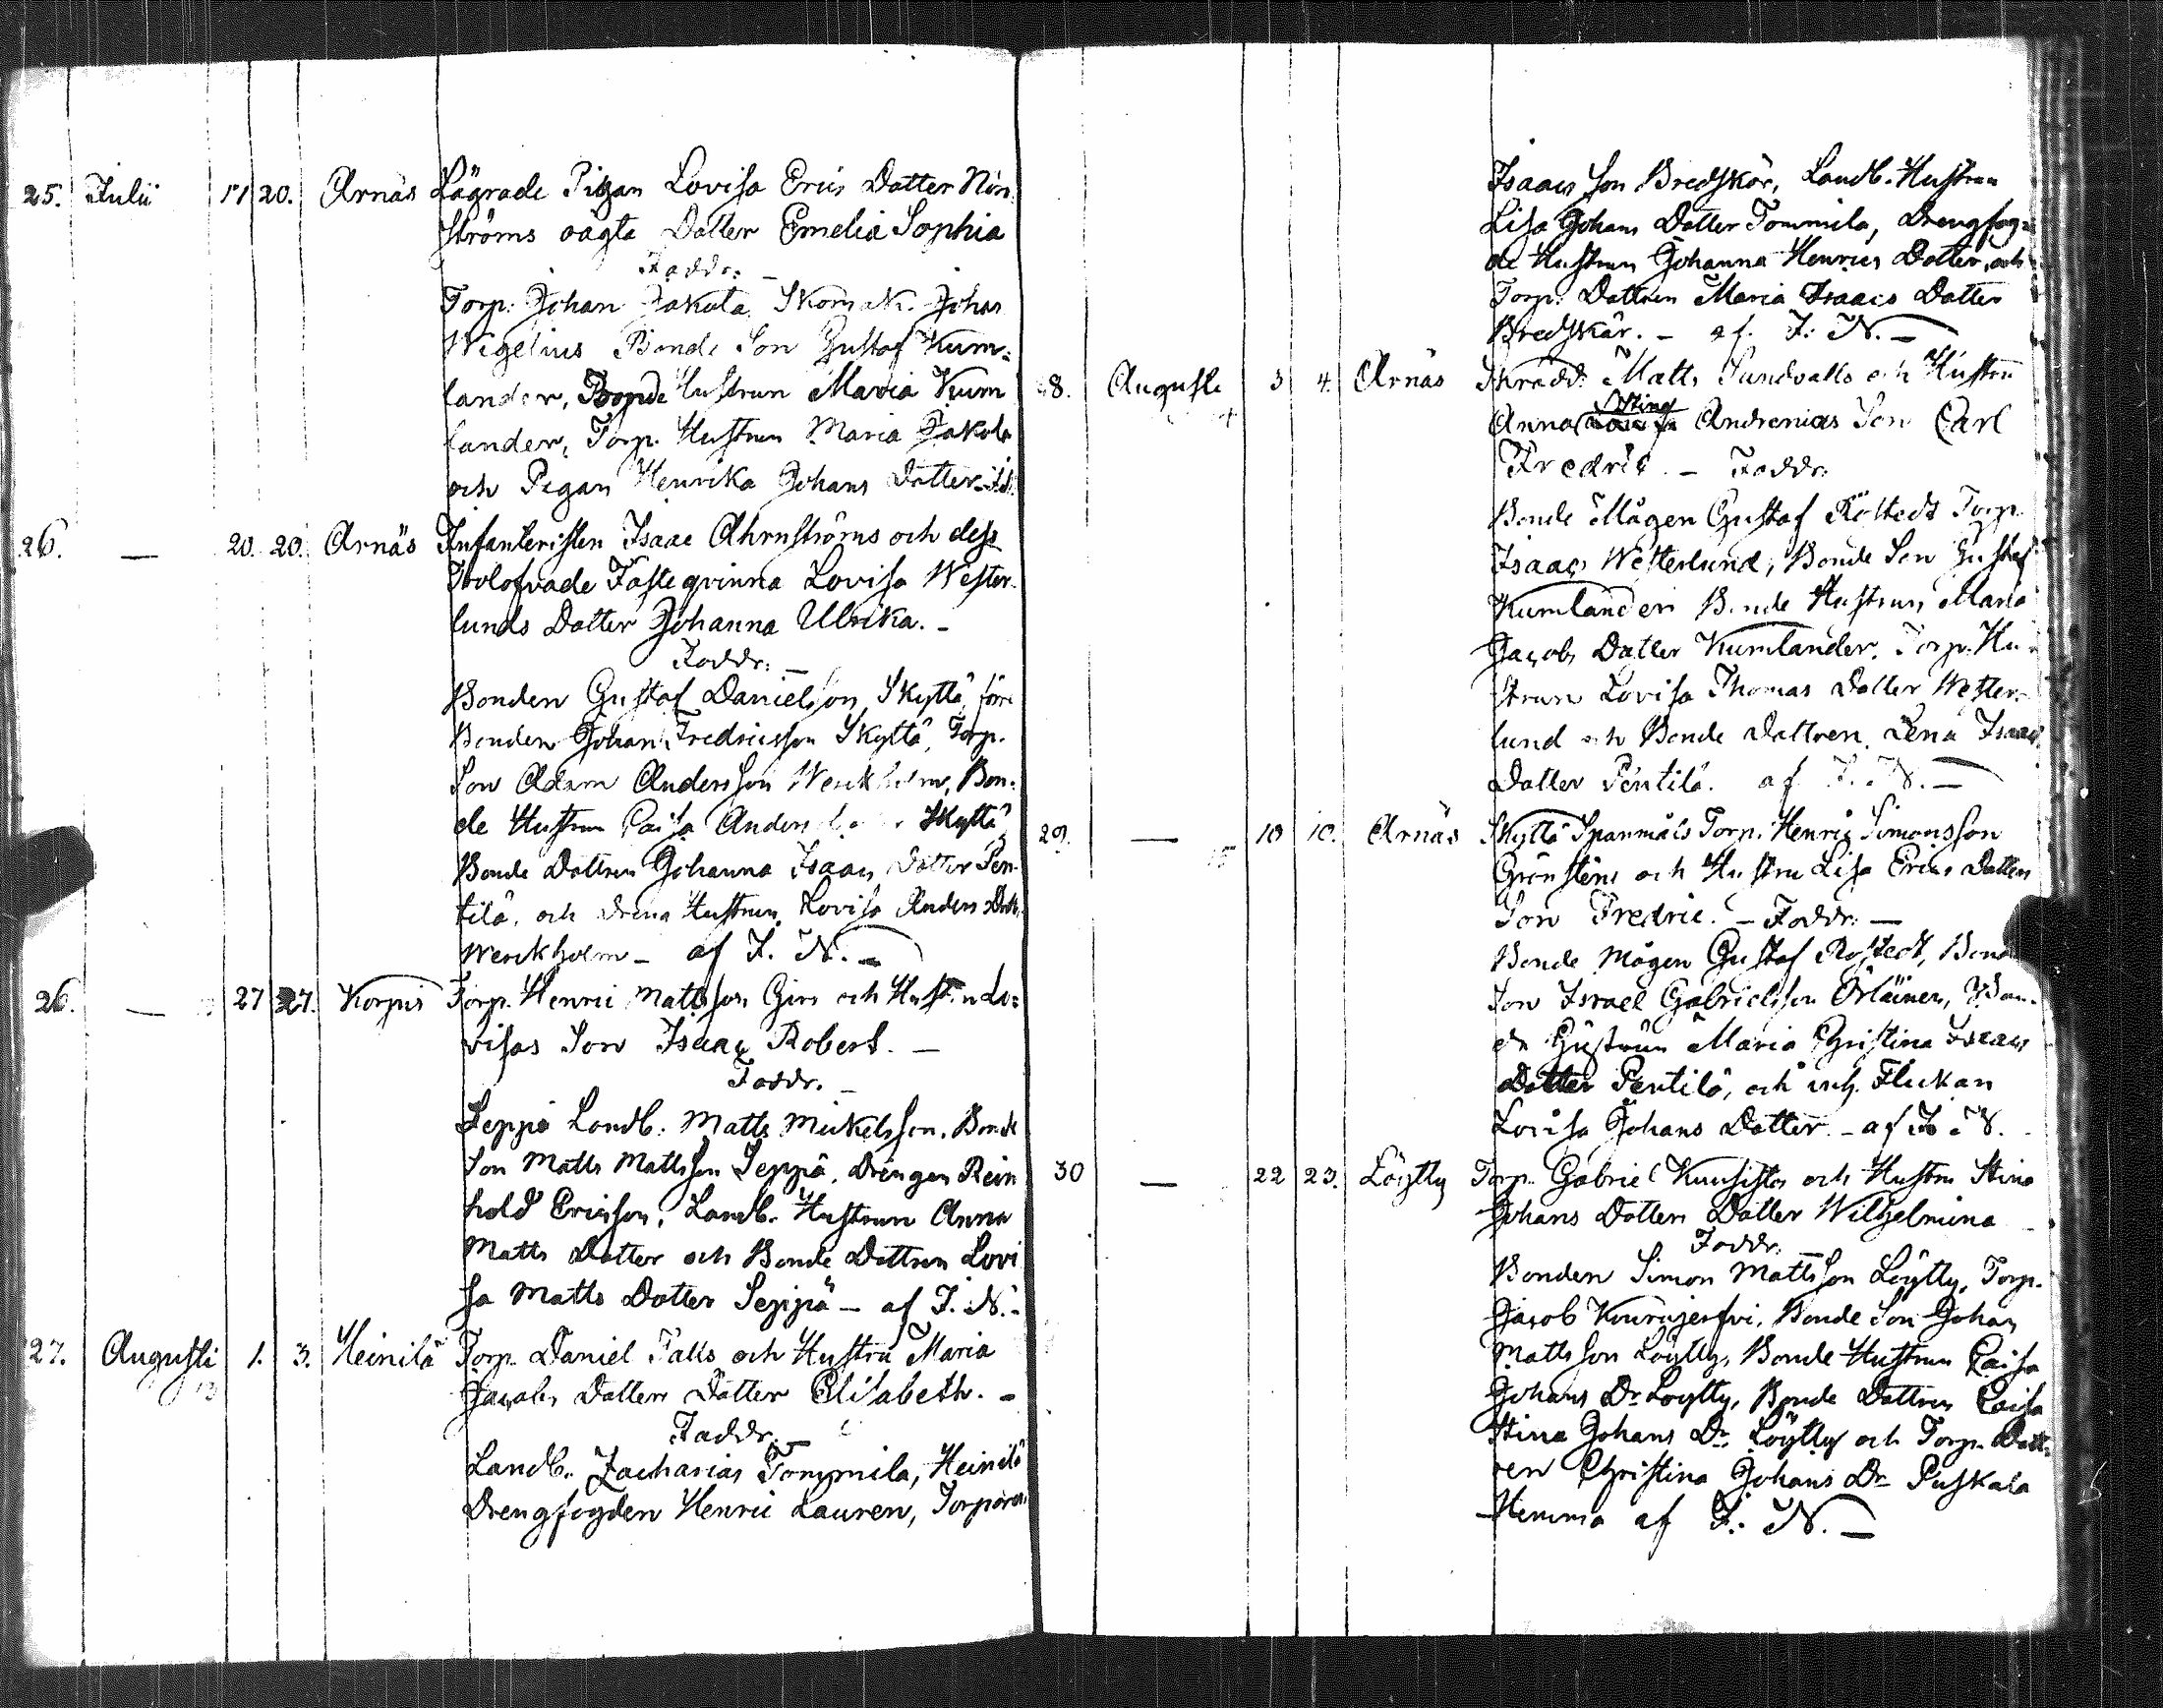 25. Julii 17 20. Arnäs Lägrade Pigan Lovisa Erics Dotter Nor
ströms oägta Dotter Emelia Sophia
Faddr: –
Torp: Johan Jakola Skomak. Johan
Wigelius Bonde Son Gustaf Kum=
lander, Bonde Hustrun Maria Kum
lander, Torp. Hustrun Maria Jakola
och Pigan Henrika Johans Dotter
26. — 20. 20. Arnäs Infanteristen Isaac Ahrnströms och dess
Trolofvade Fästeqvinna Lovisa Wester-
lunds Dotter Johanna Ulrika. –
Faddr: –
Bonden Gustaf Danielsson Skyttä, före
Bonden Johan Fredricsson Skyttä, Torp.
Son Adam Andersson Werkholm, Bon-
de Hustrun Caisa Anders Skyttä
Bonde Dottren Johanna Isaacs Dotter Pen-
tilä, och Hustrun Lovisa Anders Dott.
Werkholm – af F. N. –
26. — 27 27. Korpis Torp. Henric Mattsson Girs och Hustrun Lo=
visas Son Isaac Robert. —
Faddr. –
Seppä Landb. Matts Mickelsson, Bonde
Son Matts Mattsson Seppä, Drengen Rein
hold Ericsson, Landb. Hustrun Anna
Matts Dotter och Bonde Dottren Lovi
sa Matts Dotter Seppä – af F. N. –
27. Augusti 1. 3. Heinilä Torp. Daniel Falks och Hustru Maria
Jacobs Dotters Dotter Elisabeth. –
Faddr. –
Landb. Zacharias Tommila, Heinilä
Drengfogden Henric Lauren, Torparen
Isaacs Son Bredskär, Landb. Hustrun
Lisa Johans Dotter Tommila, Drengfog=
de Hustrun Johanna Henrics Dotter, och
Torp. Dottren Maria Isaacs Dotter
Bredskär. – af F. N. –
28. Augusti 3 4. Arnäs Skrädd. Matts Sundvalls och Hustru
Anna Stina Andrenias Son Carl
Fredric – Faddr:
Bonde Mågen Gustaf Rostedt Torp.
Isaac Westerlund, Bonde Son Gustaf
Kumlander Bonde Hustrun Maria
Jacobs Dotter Kumlander. Torp. Hu-
strun Lovisa Thomas Dotter Wester-
lund och Bonde Dottren Lena Isaacs
Dotter Pentilä. af F. N. –
29. — 10 10. Arnäs Skyttä Spanmåls Torp. Henric Simonsson
Grönstens och Hustru Lisa Erics Dotters
Son Fredric. – Faddr: —
Bonde Mågen Gustaf Rostedt, Bonde
Son Israel Gabrielsson Örläinen, Bon-
de Hustrun Maria Christina Isaacs
Dotter Pentilä, och Flickan
Lovisa Johans Dotter – af F. N.
30 — 22 23. Löytty Torp. Gabriel Kuusistos och Hustru Stina
Johans Dotters Dotter Wilhelmina –
Faddr. –
Bonden Simon Mattsson Löytty, Torp.
Jacob Kourujerfvi, Bonde Son Johan
Mattsson Löytty, Bonde Hustrun Caisa
Johans Dr Löytty, Bonde Dottren Caisa
Stina Johans Dr Löytty och Torp. Dott-
ren Christina Johans Dr Puskala
Hemma af F. N. –